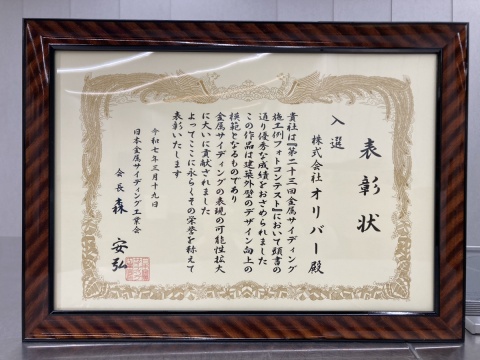 表彰状
入選
株式会社オリバー殿
貴社は『第二十三回金属サイディング
施工例フォトコンテスト』において頭書の
通り優秀な成績をおさめられました
この作品は建築外壁のデザイン向上の
模範となるものであり
金属サイディングの表現の可能性拡大
に大いに貢献されました
よってここに永らくその栄誉を称えて
表彰いたします
令和七年三月十九日
日本金属サイディング工業会
会長 森 安弘